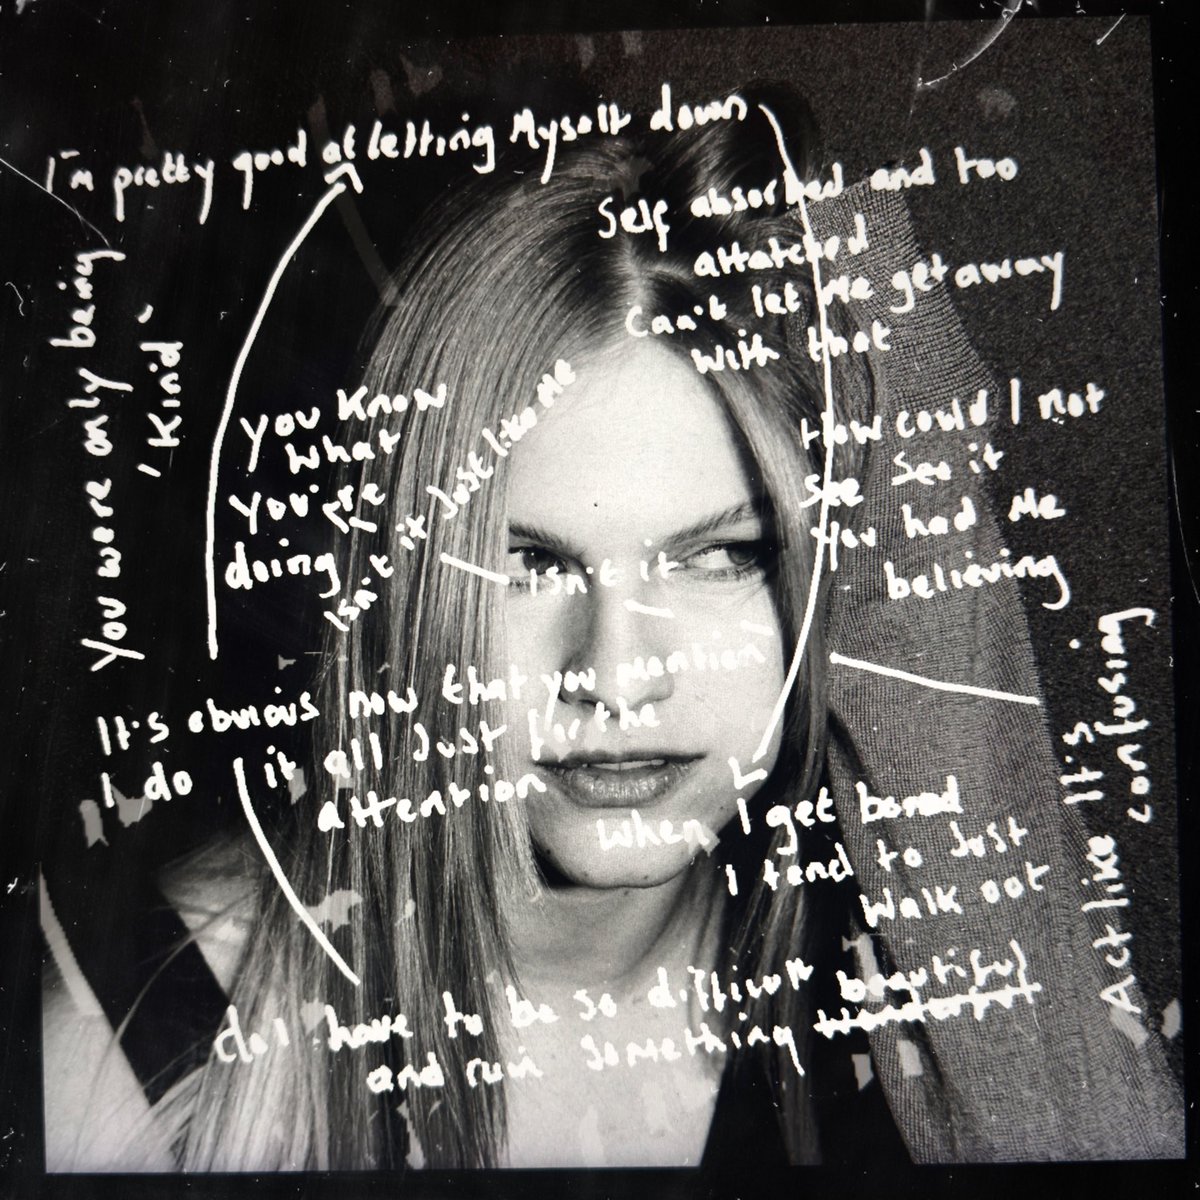 I'm pretty good at letting Myself down
Self absorbed and too
attatched
Can't let Me get away
With that
You were only being
'Kind'
You Know
What
You're
doing
Isn't it Just like Me
Isn't it
How could I not
See See it
You had Me
believing
It's obvious now that you mention
I do it all Just for the
attention
When I get bored
I tend to Just
Walk out
Act like It's
confusing
do I have to be so difficult
and ruin something beautiful